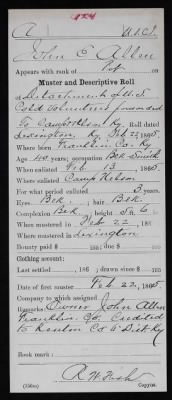 A U.S.C.
John E Allen
Appears with rank of Pvt
Muster and Descriptive Roll
a Detachment of U.S.
Cold Volunteers forwarded
to Camp Nelson Ky Roll dated
Lexington, Ky. Feb 22, 1865.
Where born Franklin Co. Ky
Age yrs; occupation Blk. Smith
When enlisted Feb 13 1865.
Where enlisted Camp Nelson
For what period enlisted 3 years.
Eyes Bck.; hair Bck.
Complexion Bck. 5 ft. 6 in.
When mustered in Feb 22, 186
Where mustered in Lexington
Bounty paid $ 100; due $ 100
Clothing account:
Last settled , 186 ; drawn since $ 100
Date of first muster Feb 22, 1865.
Company to which assigned
Remarks: Owner John Allen
Franklin Co. Credited
to Kenton Co 6 Dist Ky
Book mark:
R W Fish
(356m) Copyist.